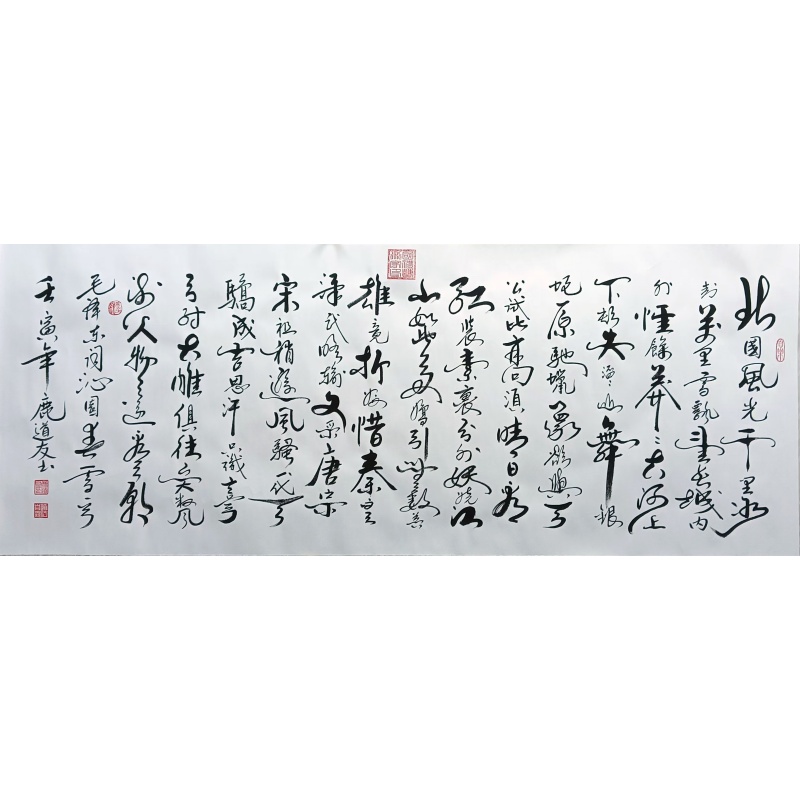 北國風光千里冰
封萬里雪飄望长城內
外惟餘莽莽大河上
下頓失滔滔山舞銀
蛇原馳蠟象欲與天
公試比高向須晴日看
紅裝素裹分外妖嬈江
山如此多嬌引無數英
雄竞折腰惜秦皇
漢武略輸文采唐宗
宋祖稍遜風騷一代天
驕成吉思汗只識彎
弓射大雕俱往矣數風
流人物還看今朝
毛泽东词沁園春雪
壬寅年鹿道友书